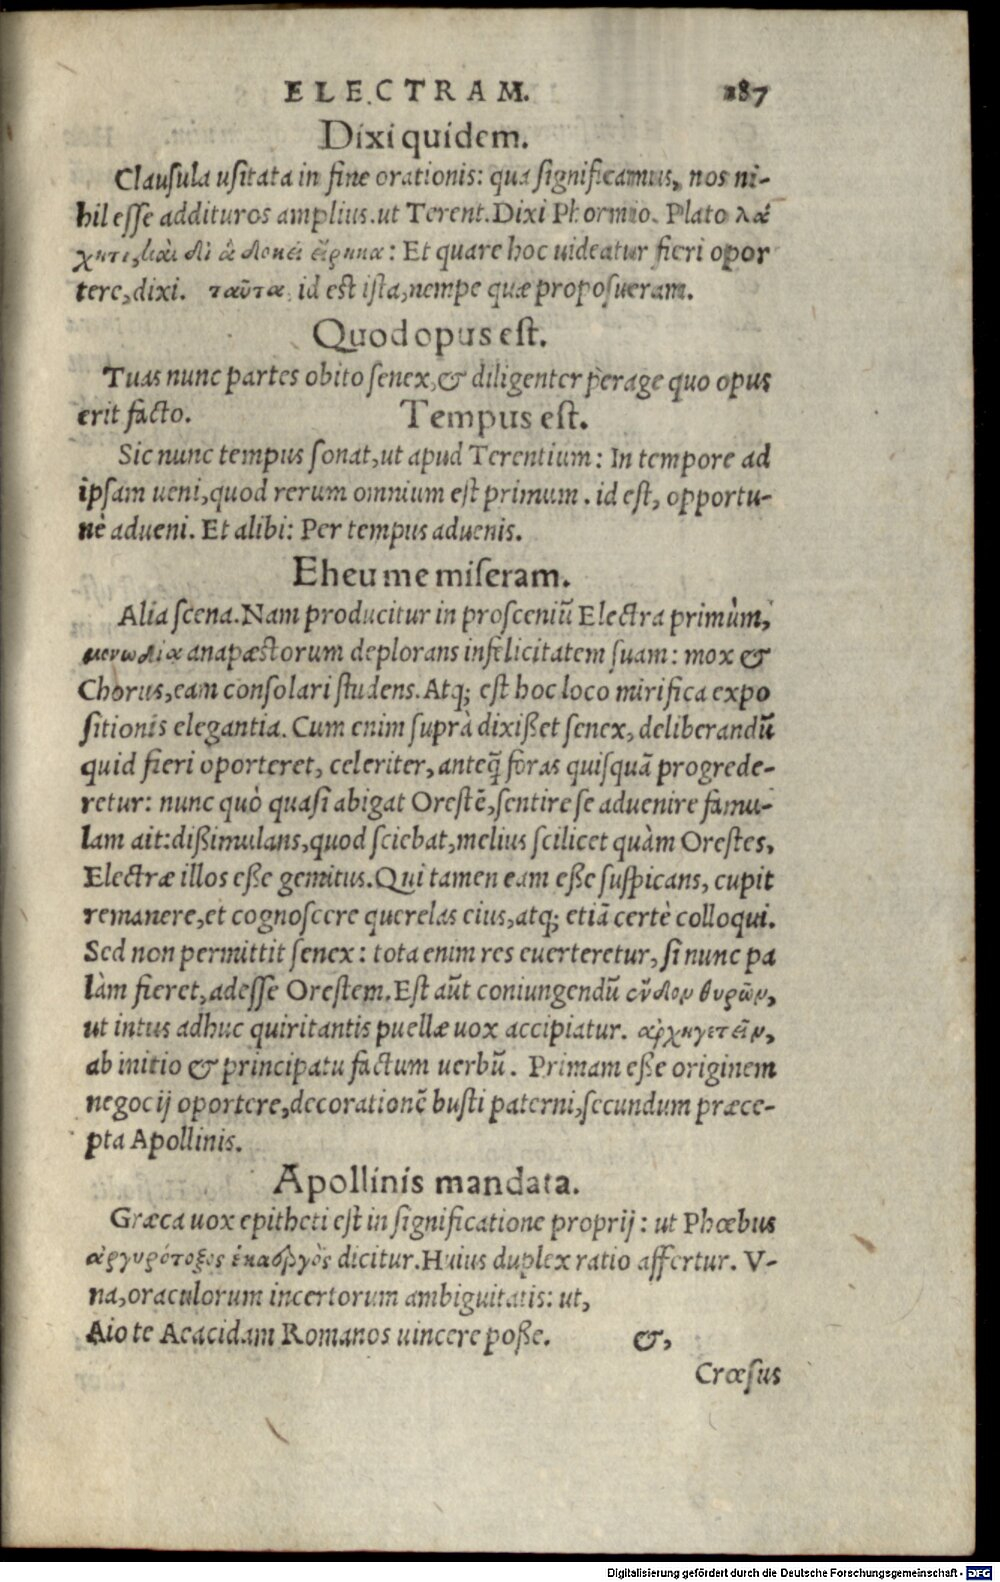 ELECTRAM. 287
Dixi quidem.
Clausula usitata in fine orationis: qua significamus, nos ni-
hil esse addituros amplius. ut Terent. Dixi Phormio. Plato λά
χητι, καὶ δὶ ἃ δοκεῖ εἴρηκα: Et quare hoc uideatur fieri opor
tere, dixi. ταῦτα, id est ista, nempe quæ proposueram.
Quod opus est.
Tuas nunc partes obito senex, & diligenter perage quo opus
erit facto. Tempus est.
Sic nunc tempus sonat, ut apud Terentium: In tempore ad
ipsam ueni, quod rerum omnium est primum. id est, opportu-
nè adueni. Et alibi: Per tempus aduenis.
Eheu me miseram.
Alia scena. Nam producitur in prosceniũ Electra primùm,
μονωδία anapæstorum deplorans infelicitatem suam: mox &
Chorus, eam consolari studens. Atq; est hoc loco mirifica expo
sitionis elegantia. Cum enim suprà dixißet senex, deliberandũ
quid fieri oporteret, celeriter, anteq̃ foras quisquã progrede-
retur: nunc quò quasi abigat Orestẽ, sentire se aduenire famu-
lam ait: dißimulans, quod sciebat, melius scilicet quàm Orestes,
Electræ illos eße gemitus. Qui tamen eam eße suspicans, cupit
remanere, et cognoscere querelas eius, atq; etiã certè colloqui.
Sed non permittit senex: tota enim res euerteretur, si nunc pa
làm fieret, adesse Orestem. Est aũt coniungendũ ἔνδον θυρῶν,
ut intus adhuc quiritantis puellæ uox accipiatur. ἀρχηγετεῖν,
ab initio & principatu factum uerbũ. Primam eße originem
negocij oportere, decorationẽ busti paterni, secundum præce-
pta Apollinis.
Apollinis mandata.
Græca uox epitheti est in significatione proprij: ut Phœbus
ἀργυρότοξος ἑκαεργὸς dicitur. Huius duplex ratio affertur. V-
na, oraculorum incertorum ambiguitatis: ut,
Aio te Aeacidam Romanos uincere poße. &,
Crœsus
Digitalisierung gefördert durch die Deutsche Forschungsgemeinschaft - DFG